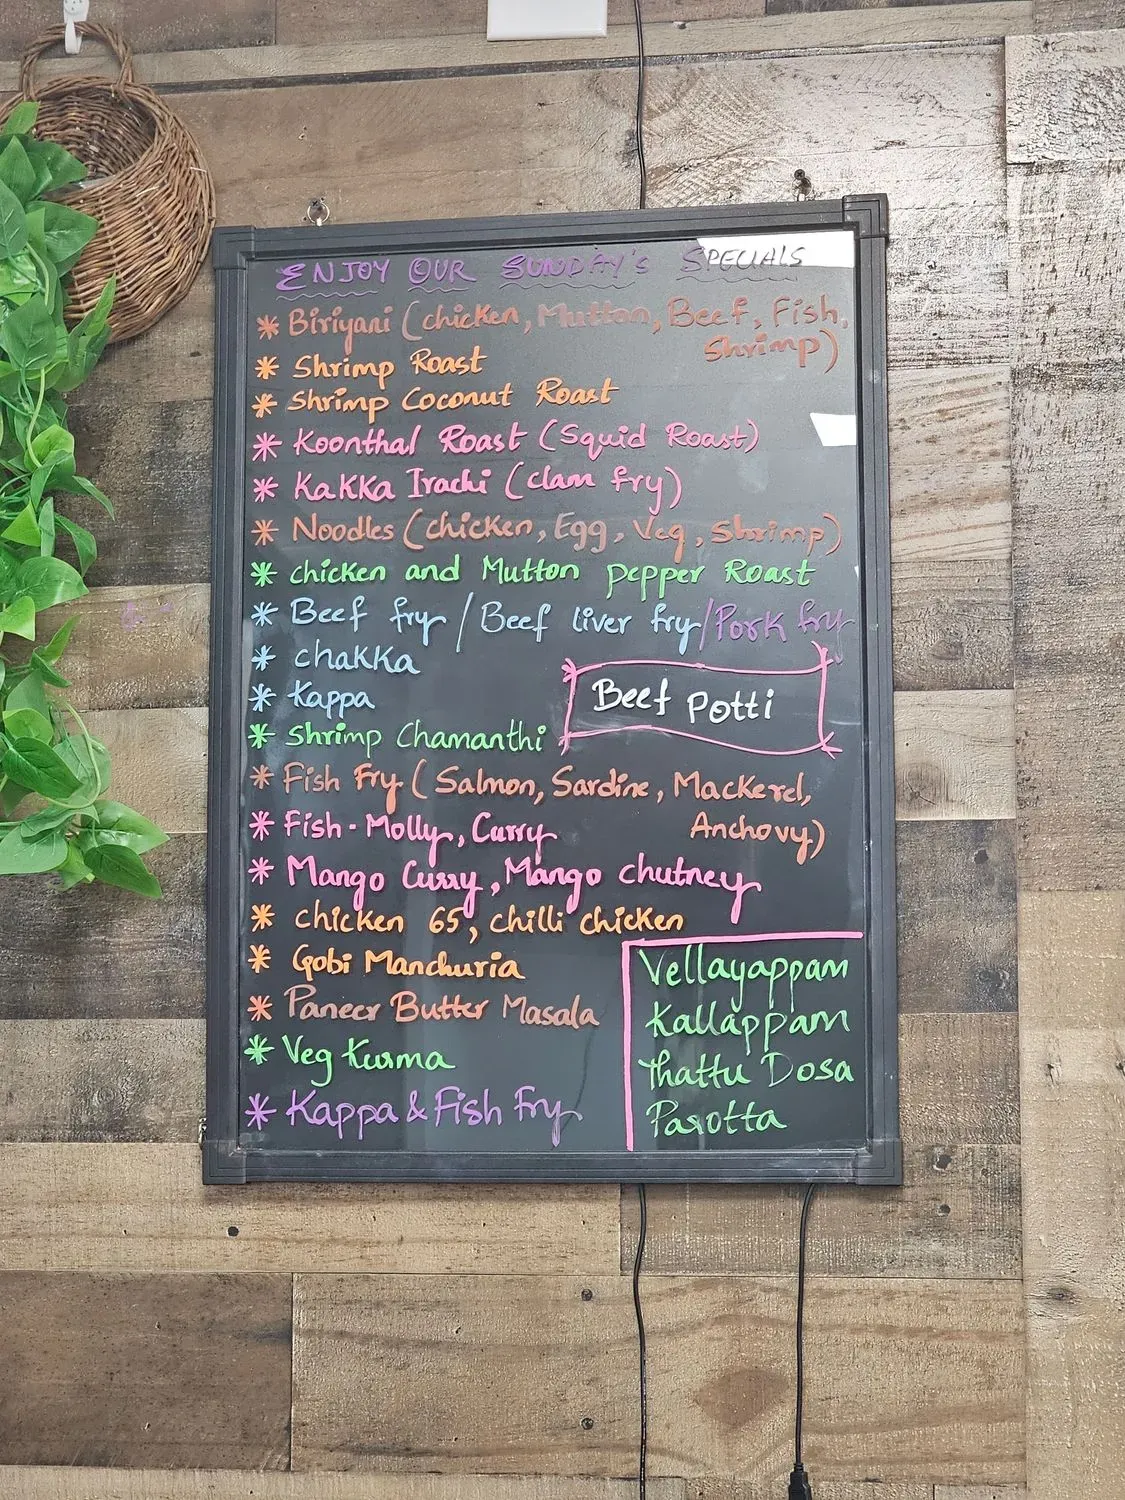 ENJOY OUR SUNDAY'S SPECIALS
* Biriyani (chicken, Mutton, Beef, Fish,
Shrimp)
* Shrimp Roast
* Shrimp Coconut Roast
* Koonthal Roast (Squid Roast)
* Kakka Irachi (clam fry)
* Noodles (chicken, Egg, Veg, Shrimp)
* chicken and Mutton pepper Roast
* Beef fry / Beef liver fry / Pork fry
* chakka
* Kappa
Beef Potti
* Shrimp Chamanthi
* Fish Fry (Salmon, Sardine, Mackerel,
Anchovy)
* Fish - Molly, Curry
* Mango Curry, Mango chutney
* chicken 65, chilli chicken
* Gobi Manchuria
* Paneer Butter Masala
* Veg Kurma
* Kappa & Fish Fry
Vellayappam
Kallappam
Thattu Dosa
Parotta